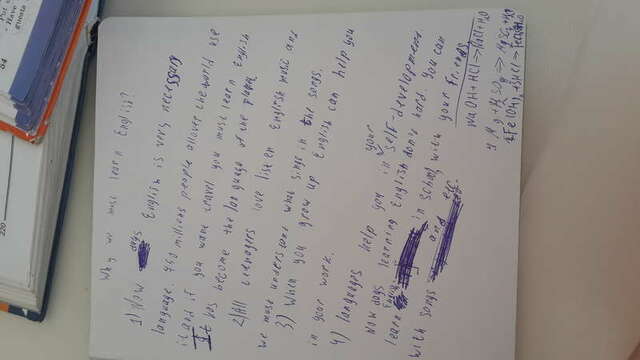 Why we must learn English?
1) Now days English is very necessary
language. 760 millions people allover the world use
it and if you want travel you must learn English
It has become the language of the planet
2) All teenagers love listen English music and
we must understand what sings in the songs.
3) When you grow up English can help you
in your work.
4) languages help you in your self-development.
Now days learning English don't hard. You can
learn English in school with your friends
with songs and etc.
NaOH + HCl → NaCl + H2O
220
84